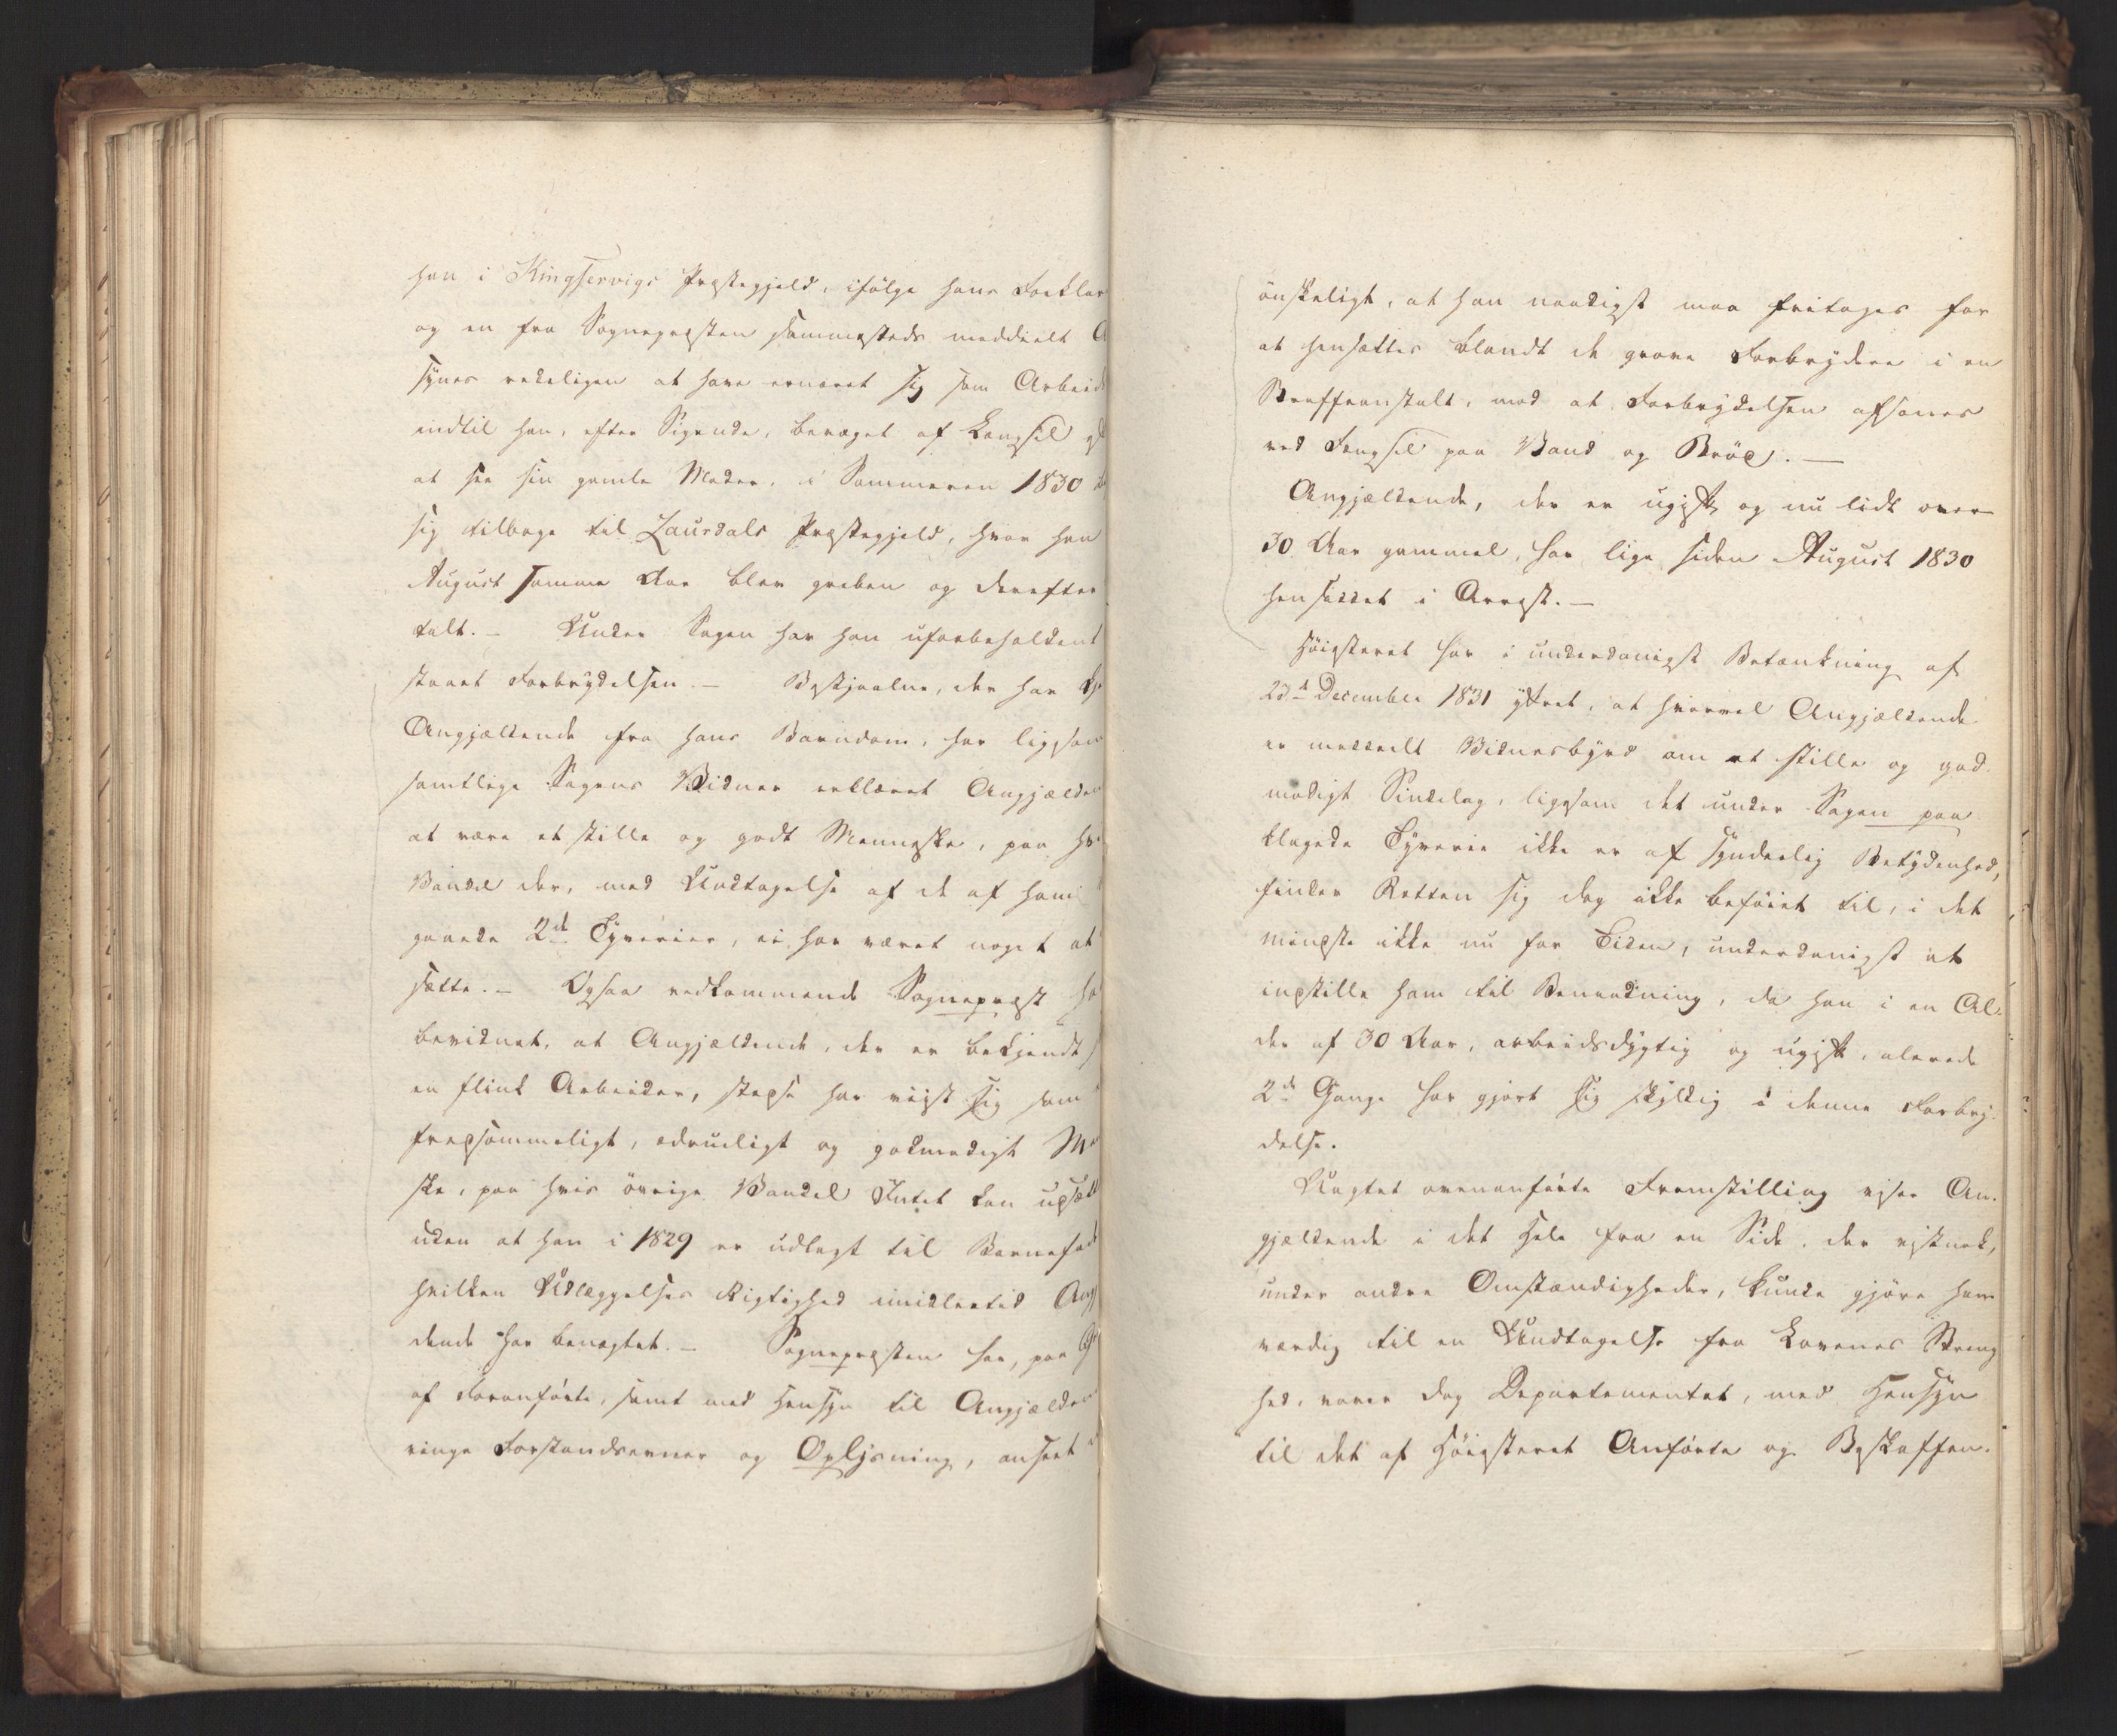 han i Kingservigs Præstegjeld, ifølge hans Forklar
og en fra Sognepræsten sammesteds meddeelt A
synes redeligen at have ernæret sig som Arbeid
indtil han, efter Sigende, bevæget af Længsel
at see sin gamle Moder, i Sommeren 1830
sig tilbage til Laurdals Præstegjeld, hvor han
August samme Aar blev greben og derefter
talt. – Under Sagen har han uforbeholdent
staaet Forbrydelsen. – Bestjaalne, der har kj
Angjældende fra hans Barndom, har ligesom
samtlige Sagens Vidner erklæret Angjælden
at være et stille og godt Menneske, paa hv
Vandel der, med Undtagelse af de af ham
gaaede 2de Tyverier, ei har været noget at
sætte. – Ogsaa vedkommende Sognepræst ha
bevidnet, at Angjældende, der er bekjendt s
en flink Arbeider, stedse har viist sig som
tresommeligt, ædrueligt og godmodigt Me
ske, paa hvis øvrige Vandel Intet kan udsætt
uden at han i 1829 er udlagt til Barnefad
hvilken Udlæggelses Rigtighed imidlertid Angj
dende har benægtet. – Sognepræsten har, paa G
af Foranførte, samt med Hensyn til Angjælden
ringe Forstandsevner og Oplysning, anseet
ønskeligt, at han naadigst maa fritages for
at hensættes blandt de grove Forbrydere i en
Straffeanstalt, mod at Forbrydelsen afsones
ved Fængsel paa Vand og Brød. –
Angjældende, der er ugift og nu lidt over
30 Aar gammel, har lige siden August 1830
hensiddet i Arrest. –
Høiesteret har i underdanigst Betænkning af
23de December 1831 yttret, at hvorvel Angjældende
er meddeelt Vidnesbyrd om et stille og god-
modigt Sindelag, ligesom det under Sagen paa-
klagede Tyverie ikke er af synderlig Betydenhed,
finder Retten sig dog ikke beføiet til, i det
mindste ikke nu for Tiden, underdanigst at
indstille ham til Benaadning, da han i en Al-
der af 30 Aar, arbeidsdygtig og ugift, alerede
2de Gange har gjort sig skyldig i denne Forbry-
delse.
Uagtet ovenanførte Fremstilling viser An-
gjældende i det Hele fra en Side, der vistnok,
under andre Omstændigheder, kunde gjøre ham
værdig til en Undtagelse fra Lovenes Streng-
hed, vover dog Departementet, med Hensyn
til det af Høiesteret Anførte og Beskaffen-